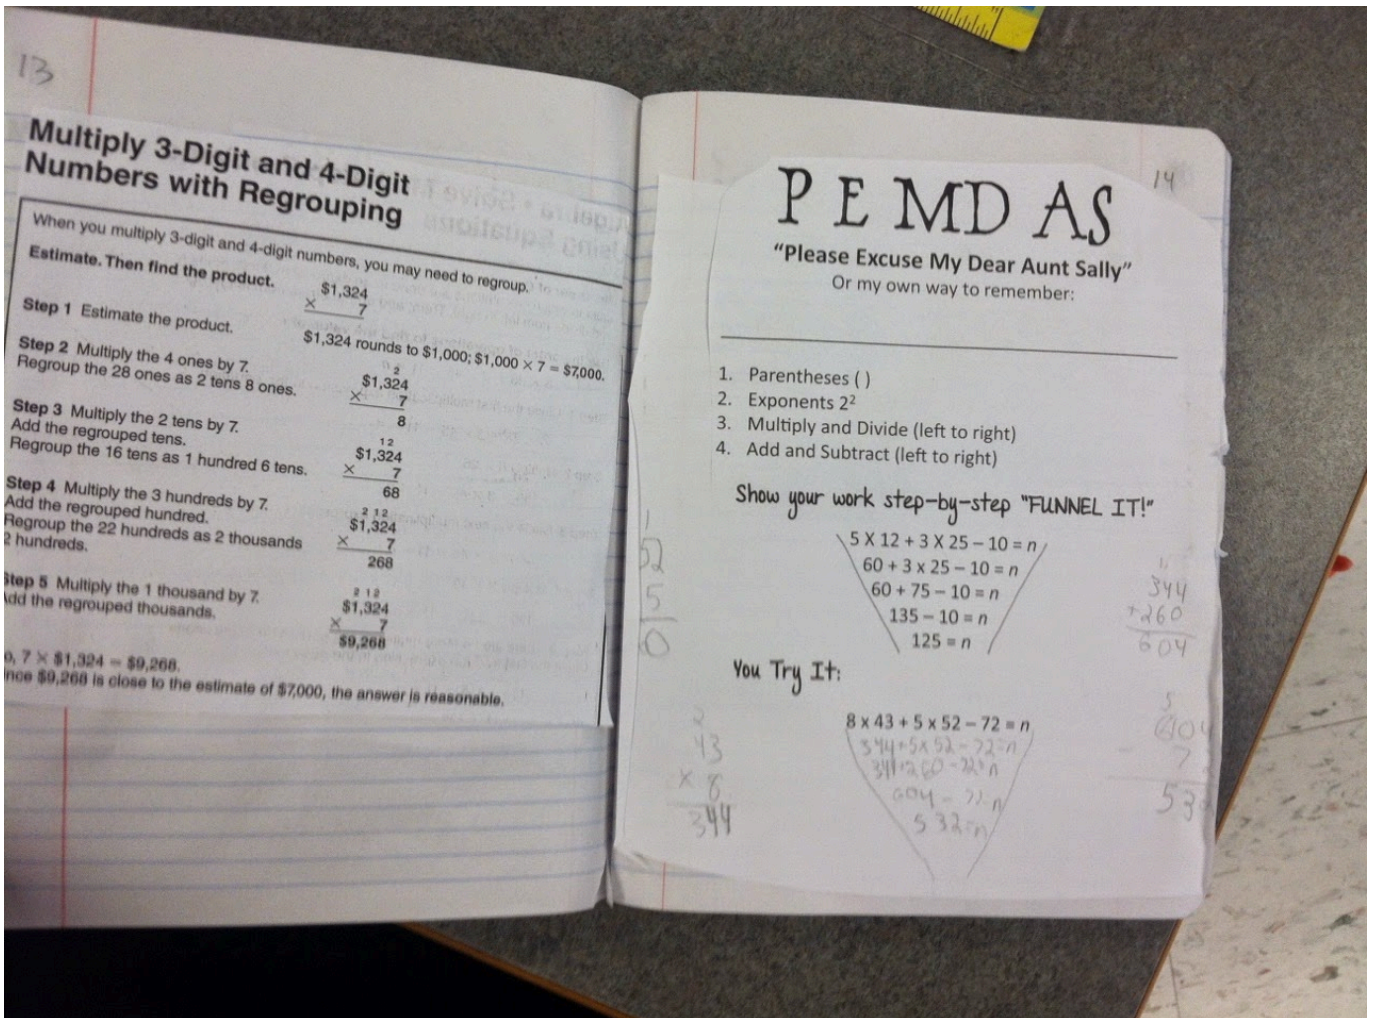 13
Multiply 3-Digit and 4-Digit
Numbers with Regrouping
When you multiply 3-digit and 4-digit numbers, you may need to regroup.
Estimate. Then find the product.
$1,324
× 7
Step 1 Estimate the product.
$1,324 rounds to $1,000; $1,000 × 7 = $7,000.
Step 2 Multiply the 4 ones by 7.
Regroup the 28 ones as 2 tens 8 ones.
2
$1,324
× 7
8
Step 3 Multiply the 2 tens by 7.
Add the regrouped tens.
Regroup the 16 tens as 1 hundred 6 tens.
1 2
$1,324
× 7
68
Step 4 Multiply the 3 hundreds by 7.
Add the regrouped hundred.
Regroup the 22 hundreds as 2 thousands
2 hundreds.
2 1 2
$1,324
× 7
268
Step 5 Multiply the 1 thousand by 7.
Add the regrouped thousands.
2 1 2
$1,324
× 7
$9,268
o, 7 × $1,324 = $9,268.
nce $9,268 is close to the estimate of $7,000, the answer is reasonable.
14
PEMDAS
"Please Excuse My Dear Aunt Sally"
Or my own way to remember:
1. Parentheses ( )
2. Exponents 2²
3. Multiply and Divide (left to right)
4. Add and Subtract (left to right)
Show your work step-by-step "FUNNEL IT!"
5 X 12 + 3 X 25 – 10 = n
60 + 3 x 25 – 10 = n
60 + 75 – 10 = n
135 – 10 = n
125 = n
1
52
5
0
344
+260
604
You Try It:
8 x 43 + 5 x 52 – 72 = n
344+5x52-72=n
344+260-72=n
604-72=n
532=n
2
43
× 8
344
5
604
- 7
53